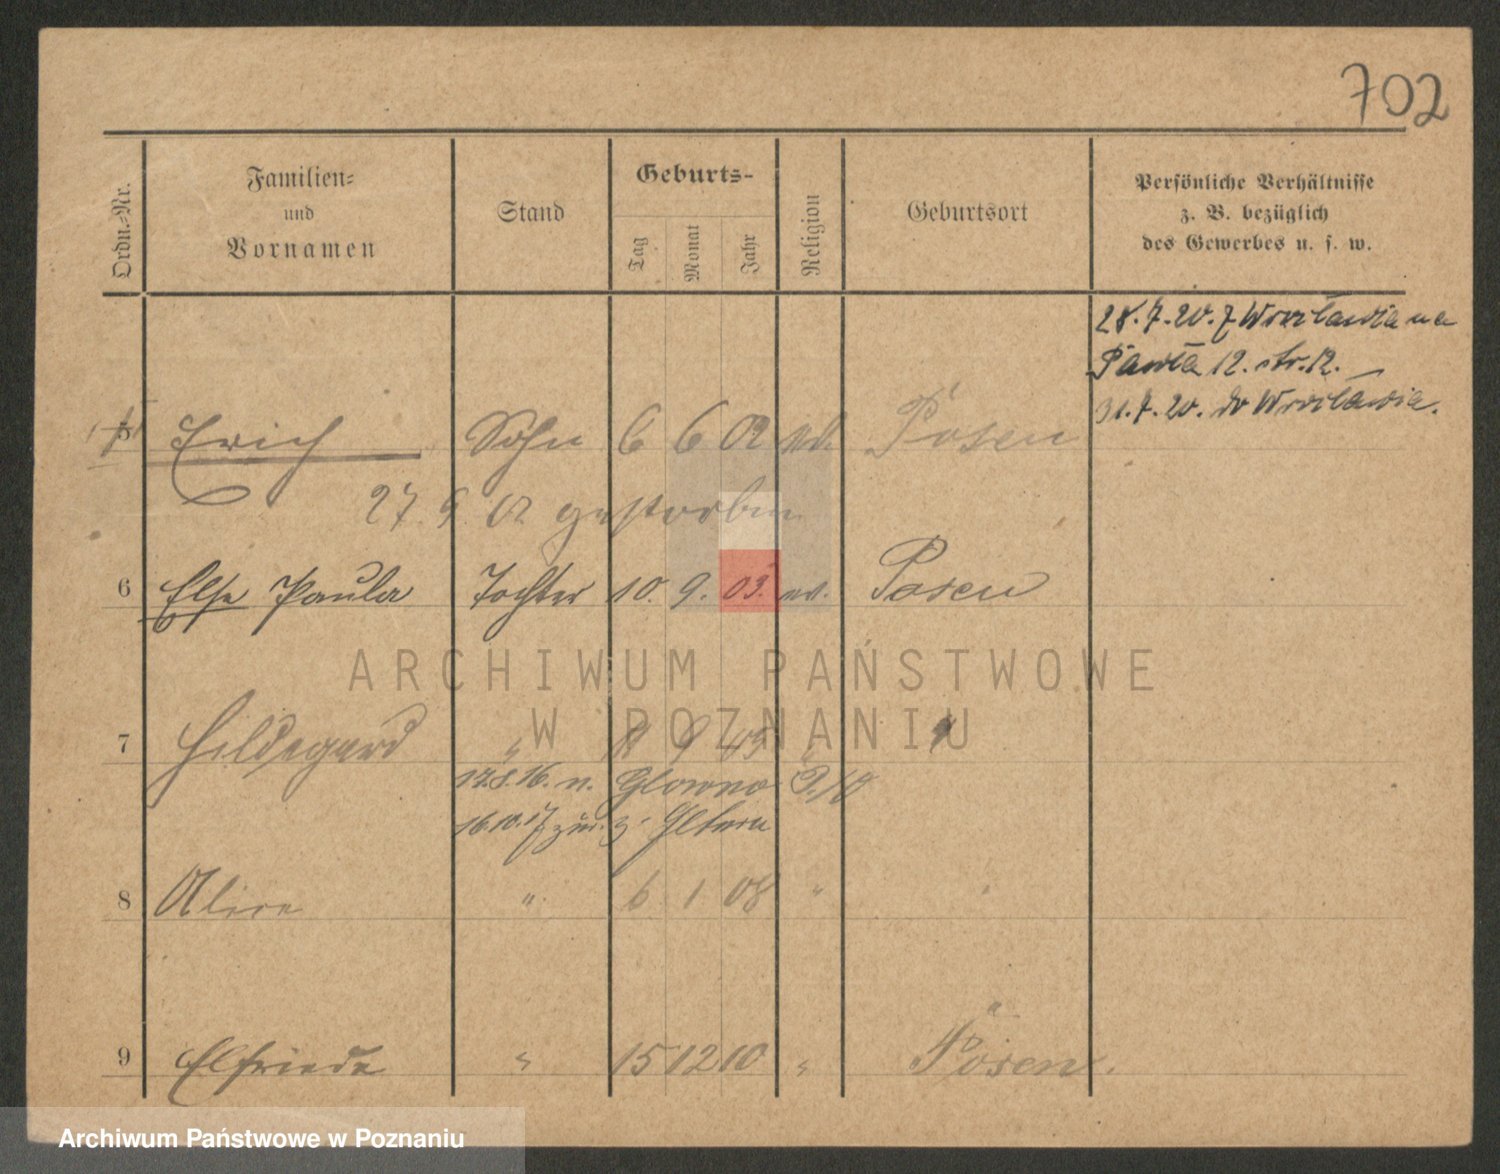 702
Ordn.-Nr.
Familien-
und
Vornamen
Stand
Geburts-
Tag
Monat
Jahr
Religion
Geburtsort
Persönliche Verhältnisse
z. B. bezüglich
des Gewerbes u. s. w.
28.7.20. z Wrocławia na
Pawła 12. str. 12.
31.7.20. do Wrocławia.
5 Erich Sohn 6 6 02 Posen
27. 9. 02 gestorben
6 Else Paula Tochter 10. 9. 03. ev. Posen
ARCHIWUM PAŃSTWOWE
W POZNANIU
7 Hildegard " 9 05 "
17.8.16. n. Glowno
16.10.17 zur. z. Eltern
8 Alice " 6 1 08 " "
9 Elfriede " 15 12 10 " Posen.
Archiwum Państwowe w Poznaniu